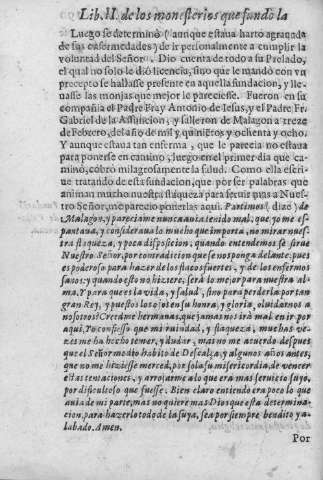 Lib. II. de los monesterios que fundò la
Luego se determinò (aunque estaua harto agrauada
de sus enfermedades) de ir personalmente a cumplir la
voluntad del Señor. Dio cuenta de todo a su Prelado,
el qual no solo le diò licencia, sino que le mandò con vn
precepto se hallasse presente en aquella fundacion, y lle-
uasse las monjas que mejor le pareciesse. Fueron en su
compañia el Padre Fray Antonio de Iesus, y el Padre Fr.
Gabriel de la Assuncion, y salieron de Malagon a treze
de Febrero, del año de mil y quinientos y ochenta y ocho.
Y aunque estaua tan enferma, que le parecia no estaua
para ponerse en camino, luego en el primer dia que ca-
minò, cobrò milagrosamente la salud. Como ella escri-
ue tratando de esta fundacion, que por ser palabras que
animan mucho nuestra flaqueza para seruir mas a Nues-
tro Señor, me pareciò ponerlas aqui. Partimos (dize) de
Malagon, y pareciame nunca auia tenido mal, que yo me es-
pantaua, y consideraua lo mucho que importa, no mirar nues-
tra flaqueza, y poca disposicion, quando entendemos se sirue
Nuestro Señor, por contradicion que se nos ponga delante: pues
es poderoso para hazer de los flacos fuertes, y de los enfermos
sanos: y quando esto no hiziere, serà lo mejor para nuestra al-
ma. Y para que es la vida, y salud, sino para perderla por tan
gran Rey, y puestos los ojos en su honra, y gloria, oluidarnos a
nosotros? Creedme hermanas, que jamas nos irà mal en ir por
aqui. Yo confiesso que mi ruindad, y flaqueza, muchas ve-
zes me ha hecho temer, y dudar, mas no me acuerdo despues
que el Señor me dio habito de Descalça, y algunos años antes,
que no me hiziesse merced, por sola su misericordia, de vencer
estas tentaciones, y arrojarme a lo que era mas seruicio suyo,
por dificultoso que fuesse. Bien claro entiendo era poco lo que
auia de mi parte, mas no quiere mas Dios que esta determina-
cion, para hazerlo todo de la suya, sea por siempre bendito y a-
labado. Amen.
Por